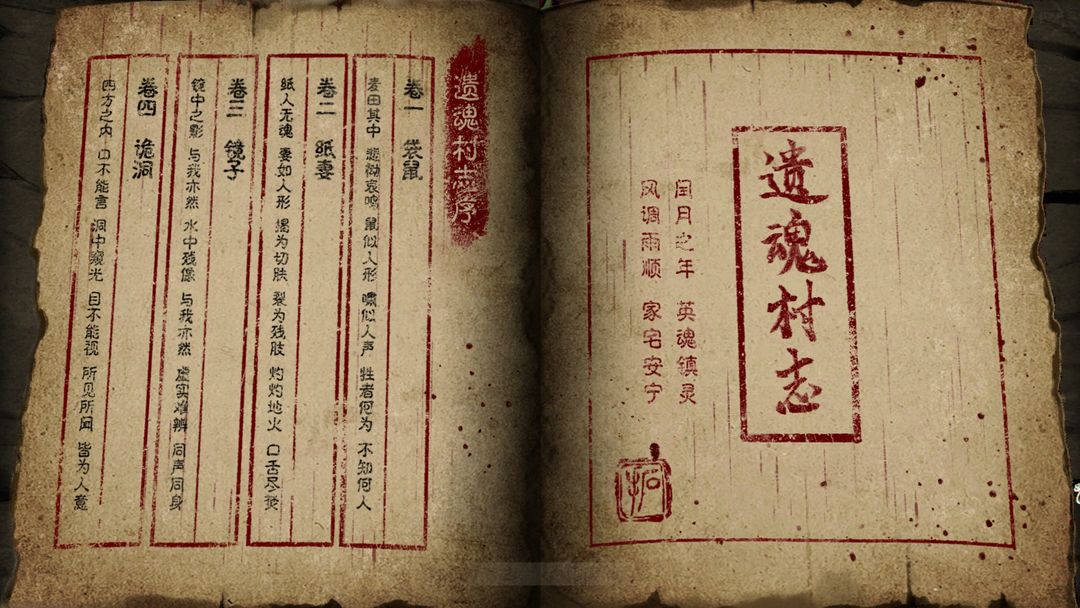 遗魂村志
闰月之年 英魂镇灵
风调雨顺 家宅安宁
拓
遗魂村志序
卷一 袋鼠
麦田其中 悲恸哀鸣 鼠似人形 啸似人声 牲者何为 不知何人
卷二 纸妻
纸人无魂 妻如人形 揭为切肤 裂为残肢 灼灼地火 口舌尽焚
卷三 镜子
镜中之影 与我亦然 水中残像 与我亦然 虚实难辨 同声同身
卷四 诡洞
四方之内 口不能言 洞中窥光 目不能视 所见所闻 皆为人意